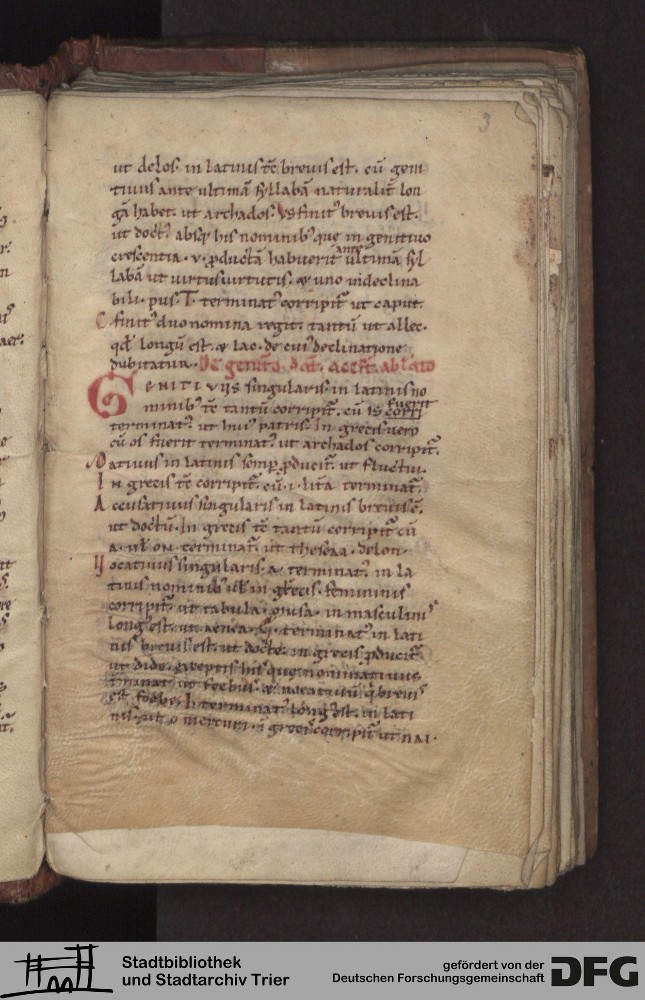 3
ut delos. in latinis tc̄ brevis est. cū geni
tivus ante ultimā syllabā naturalit̄ lon
gā habet. ut archados. Vs finit᾽ brevis est.
ut doct᾽. absq; his nominib᾽ que in genitivo
crescentia .v. p̄ductā habuerīt ante ultimā syl
labā ut virtus virtutis. & uno indeclina
bili. pus. T. terminat᾽ corripit᾽ ut caput.
C finit᾽ duo nomina regit. tantū ut allec.
qd̄ longū est. & lac. de cui᾽ declinatione
dubitatur. De genit̄o dat̄. acc̄t. ablat̄o
GENITIVUS singularis. in latinis no
minib᾽ tc̄ tantū corripit᾽. cū is fuerit
terminat᾽. ut hui᾽ patris. In grecis vero
cū os fuerit terminat᾽. ut archados corripit᾽.
Dativus in latinis semp̄ p̄ducit᾽. ut fluctui.
In grecis tc̄ corripit᾽. cū .i. lit̄a terminat᾽.
Accusativus singularis in latinis brevis ē.
ut doctū. In grecis tc̄ tantū corripit᾽ cū
a. ul̄ on. terminat᾽. ut thesea. delon.
Vocativus singularis .a. terminat᾽. in la
tinis nominib᾽ ul̄ in grecis. femininis
corripit᾽ ut tabula. musa. in masculinis
long᾽ est. ut aenea. E. terminat᾽ in lati
nis brevis est. ut docte. in grecis p̄ducit᾽
ut dido. exceptis his que nominativus
est. foebe. I. terminat᾽ long᾽ est. in lati
nis. ut o mercuri. ī grecis corripit᾽ ut nai.
Stadtbibliothek
und Stadtarchiv Trier
gefördert von der
Deutschen Forschungsgemeinschaft
DFG